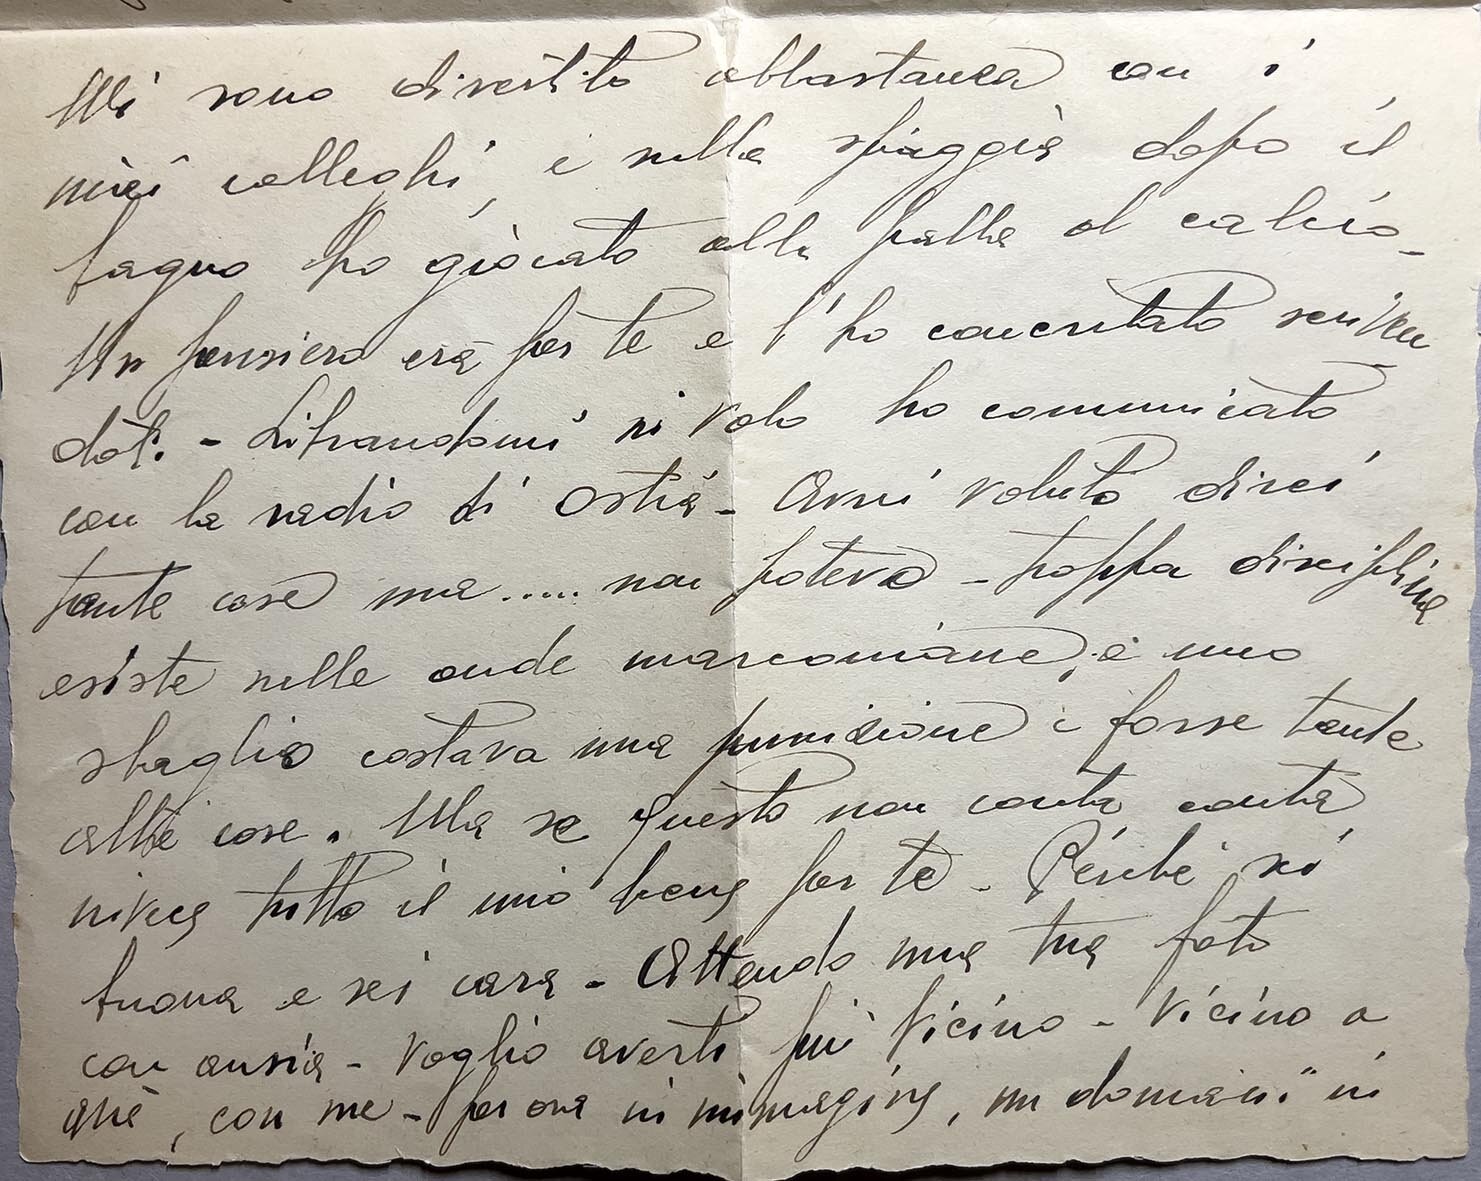 Mi sono divertito abbastanza con i
miei colleghi, e sulla spiaggia dopo il
bagno ho giocato alla palla al calcio -
Un pensiero era per te e l'ho concretato scriven
doti. - Librandomi in volo ho comunicato
con la radio di Ostia - Avrei voluto dirci
tante cose ma ..... non potevo - troppa disciplina
esiste sulle onde marconiane, e uno
sbaglio costava una punizione e forse tante
altre cose. Ma se questo non conta conta
invece tutto il mio bene per te - Perchè sei
buona e sei cara - Attendo una tua foto
con ansia - Voglio averti più vicino - Vicino a
me, con me - per ora in immagine, un domani" in